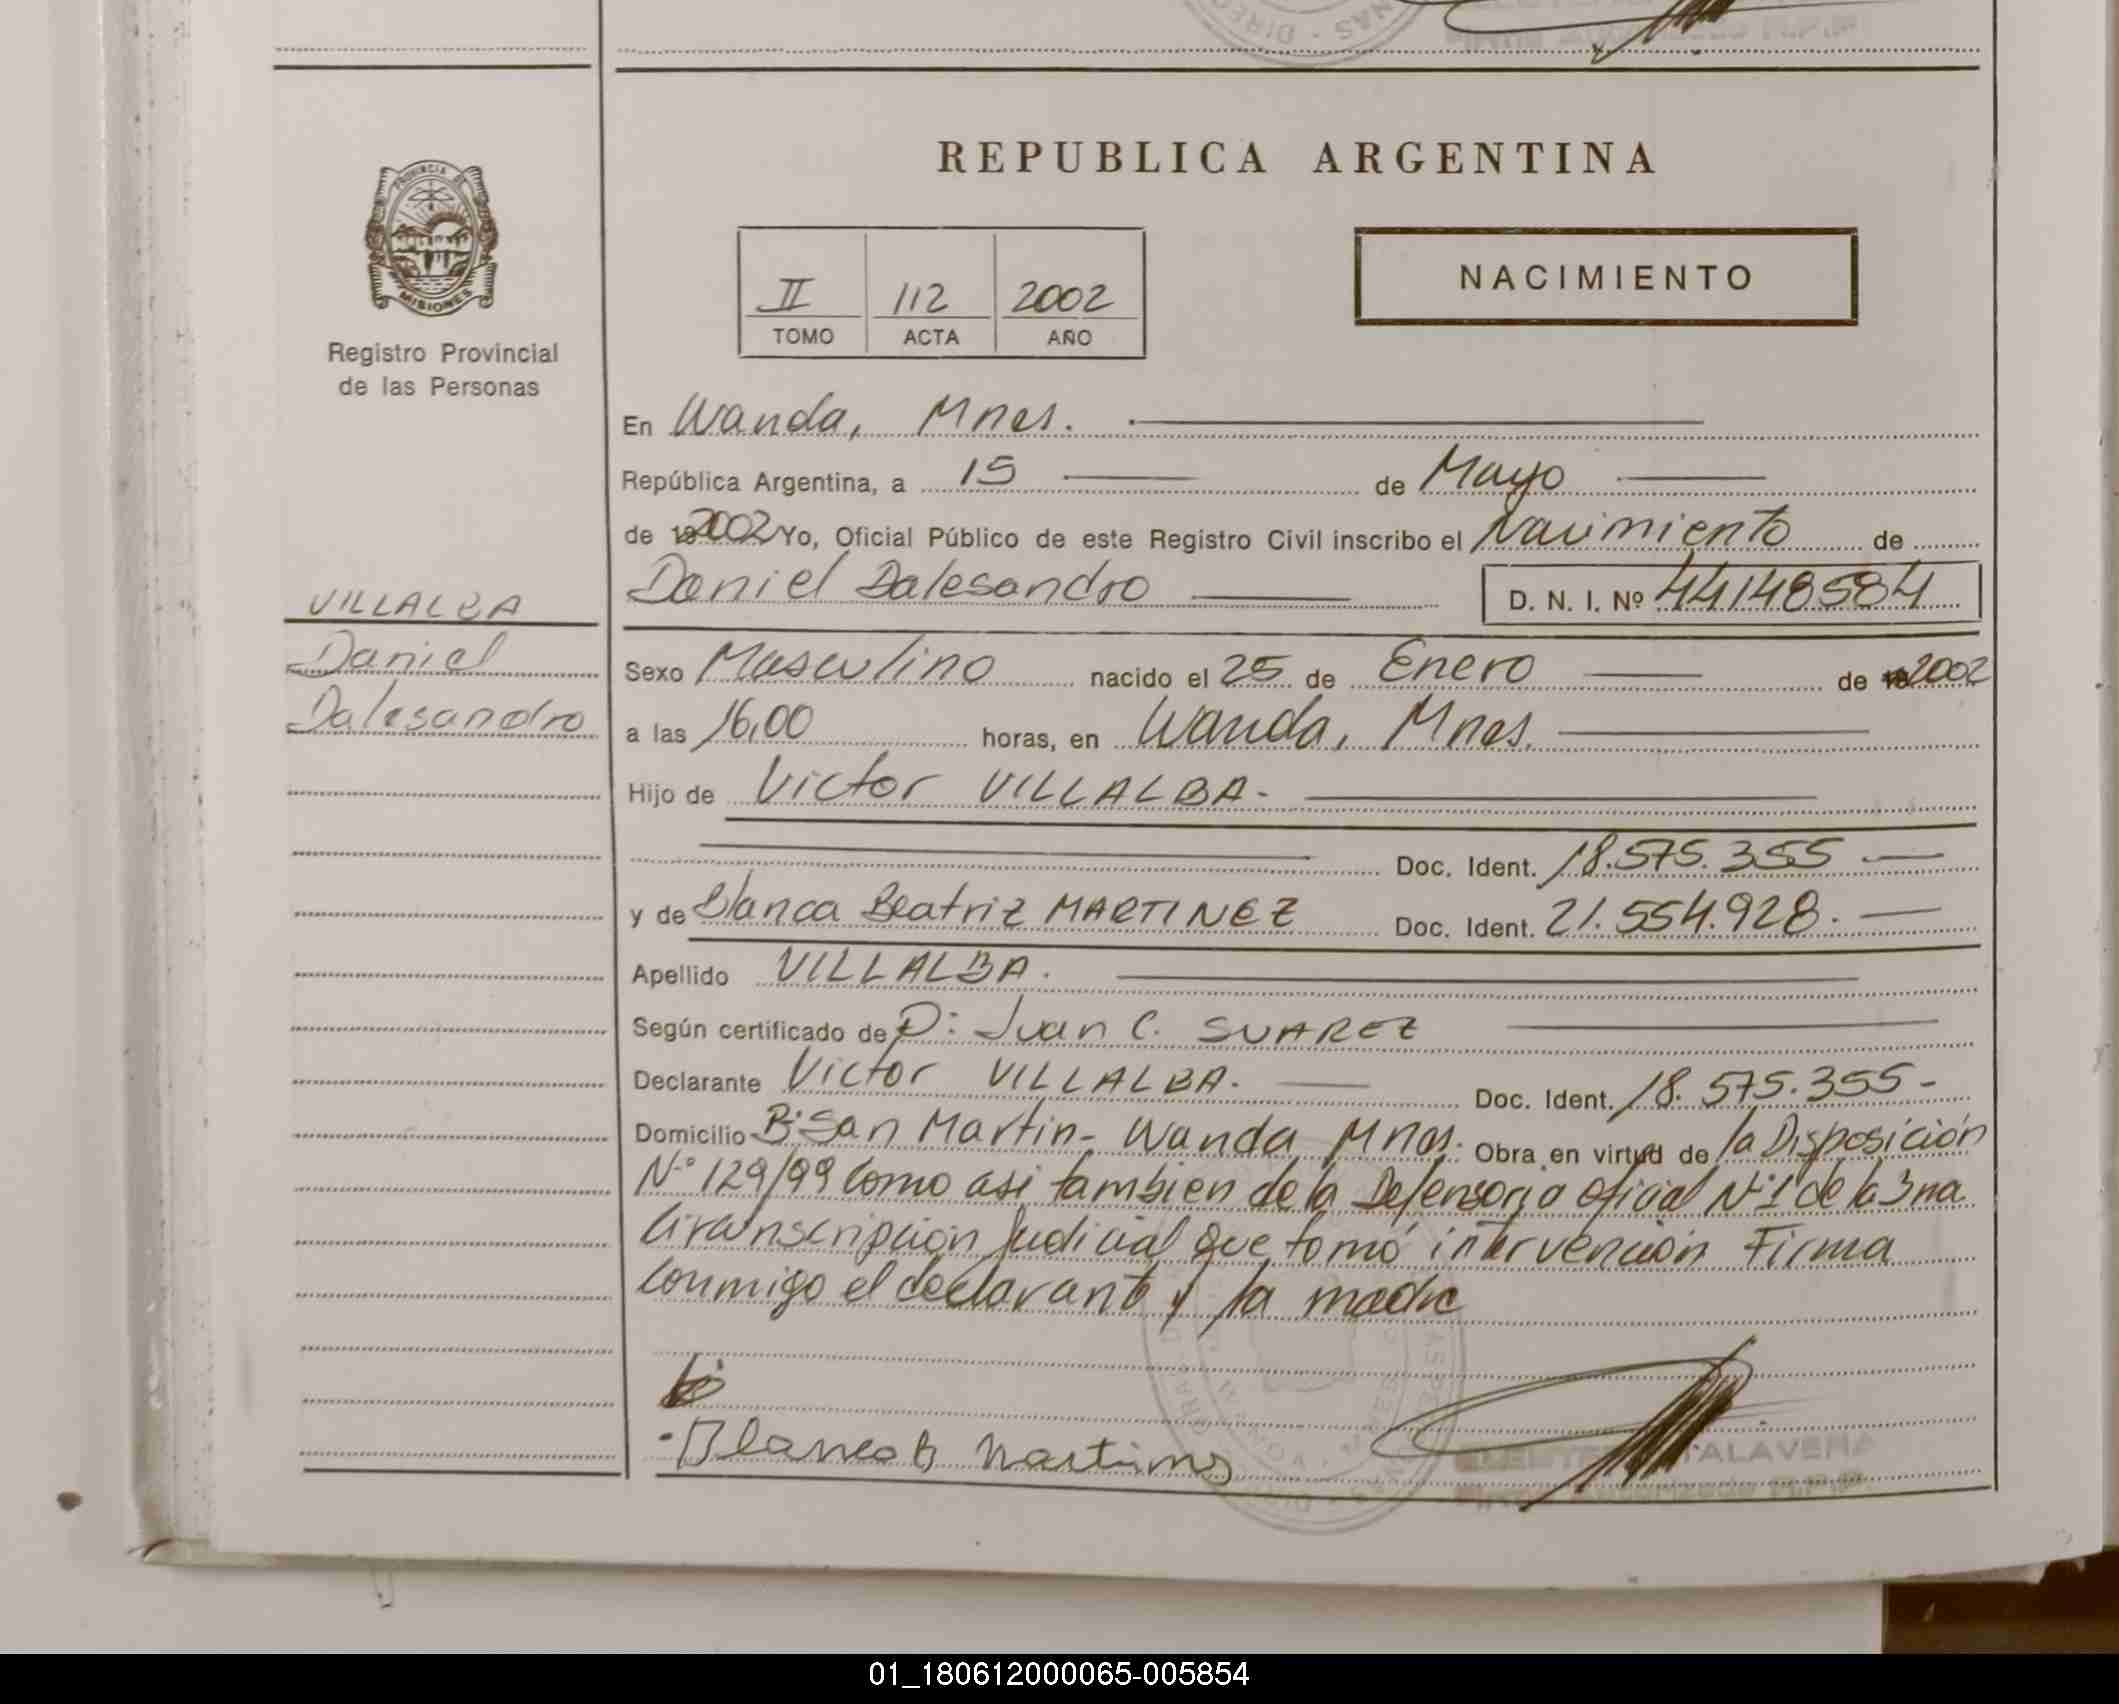 REPUBLICA ARGENTINA
NACIMIENTO
II 112 2002
TOMO ACTA AÑO
PROVINCIA DE
MISIONES
Registro Provincial
de las Personas
En Wanda, Mnes.
República Argentina, a 15 de Mayo
de 192002 Yo, Oficial Público de este Registro Civil inscribo el Nacimiento de
Daniel Dalesandro D. N. I. Nº 44148584
VILLALBA
Daniel
Dalesandro
Sexo Masculino nacido el 25 de Enero de 192002
a las 16,00 horas, en Wanda, Mnes.
Hijo de Victor VILLALBA.-
Doc. Ident. 18.575.355
y de Blanca Beatriz MARTINEZ Doc. Ident. 21.554.928.
Apellido VILLALBA.
Según certificado de P: Juan C. SUAREZ
Declarante Victor VILLALBA. Doc. Ident. 18.575.355-
Domicilio Bº San Martin- Wanda Mnes. Obra en virtud de la Disposición
Nº 129/99 como asi tambien de la Defensoria oficial Nº1 de la 3na
Circunscripción Judicial que tomó intervención Firma
conmigo el declarante y la madre
Blanca B Martines
TALAVERA
01_180612000065-005854